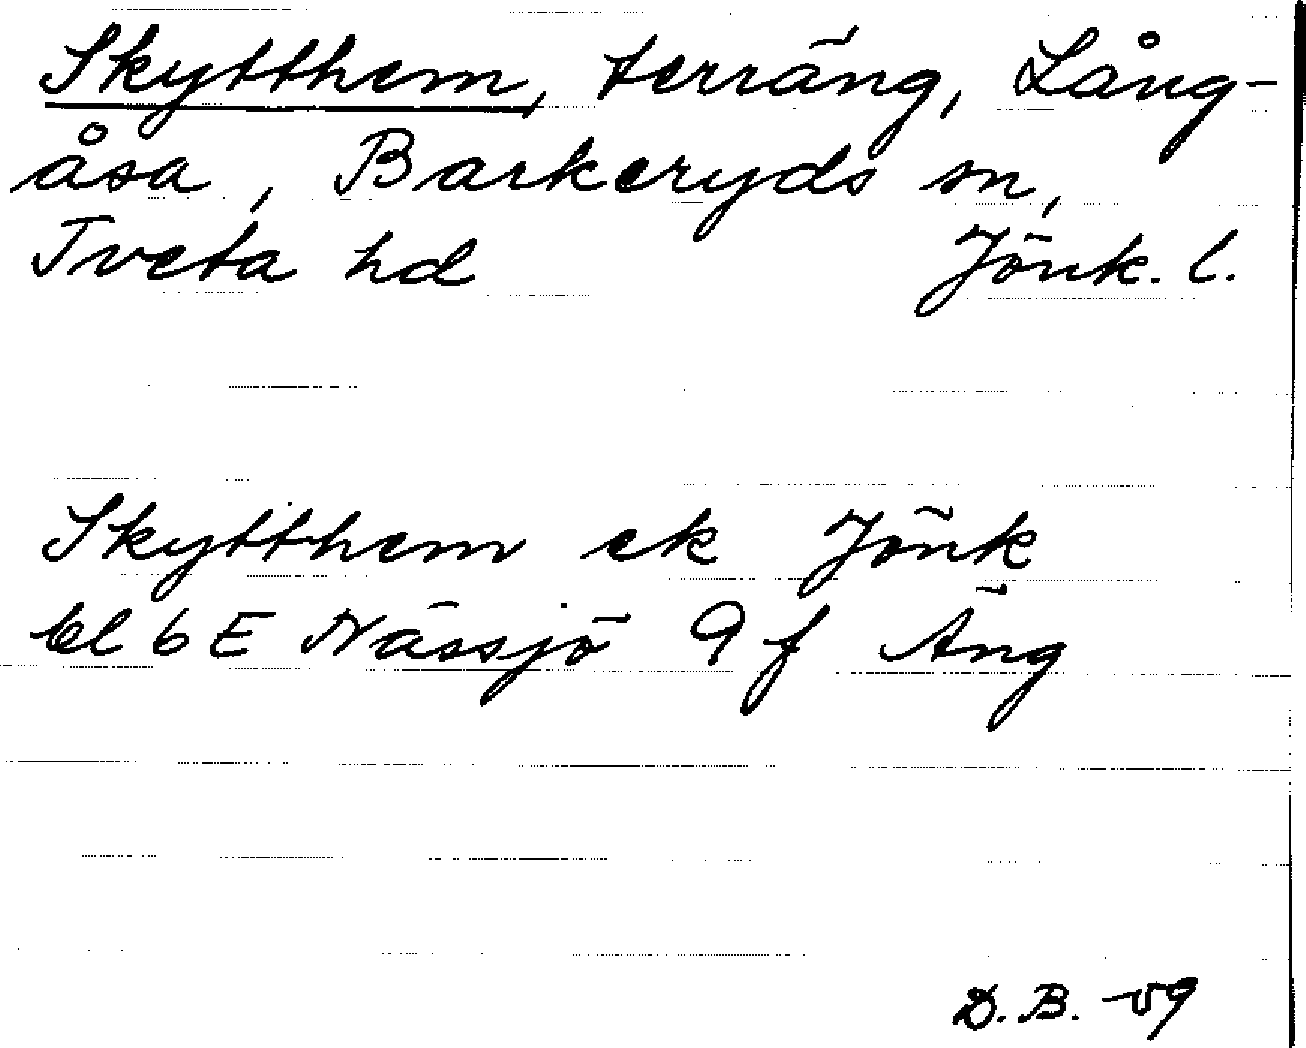 Skytthem, terräng, Lång-
åsa, Barkeryds sn,
Tveta hd Jönk. l.
Skytthem ek Jönk
bl 6 E Nässjö 9 f Äng
D. B. -59